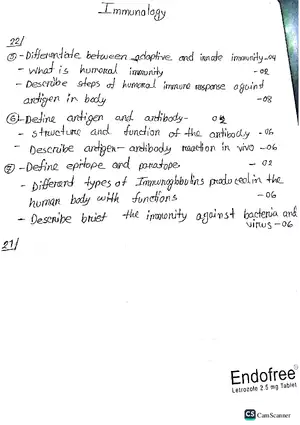 Immunology
22/
⑤ - Differentiate between adaptive and innate immunity - 04
- What is humoral immunity - 02
- Describe steps of humoral immune response against
antigen in body - 08
⑥ - Define antigen and antibody - 02
- structure and function of the antibody - 06
- Describe antigen - antibody reaction in vivo - 06
⑦ - Define epitope and paratope. - 02
- Different types of Immunoglobulins produced in the
human body with functions - 06
- Describe brief the immunity against bacteria and
virus - 06
21/
Endofree®
Letrozole 2.5 mg Tablet
CS CamScanner